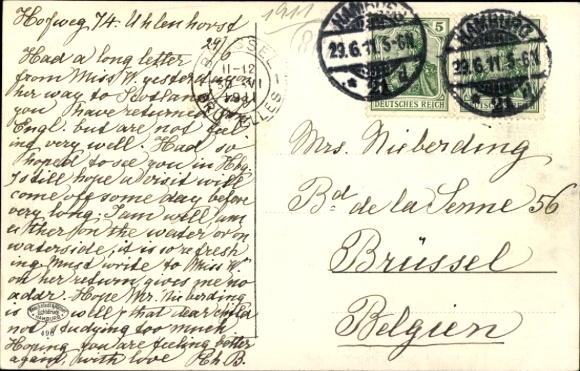 Hofweg 74. Uhlenhorst
24/6
Had a long letter
from Miss W. yesterday
her way to Scotland
you have returned
Engl. but are not feel
ing very well. Had so
hoped to see you in Hbg.
I still hope a visit will
come off some day before
very long. I am well, am
either on the water or on
waterside, it is so refresh
ing. Must write to Miss W.
on her return, gives me no
addr. Hope Mr. Nieberding
is well & that dear
not studying too much.
Hoping you are feeling better
again, with love Rh B.
1911
BRUXELLES
11-12
1911
BRUSSEL
HAMBURG
29.6.11.5-6N
21 d
HAMBURG
29.6.11.5-6N
21 d
5
DEUTSCHES REICH
DEUTSCHES REICH
Mrs. Nieberding
Bd de la Senne 56
Brüssel
Belgien
HAMBURG